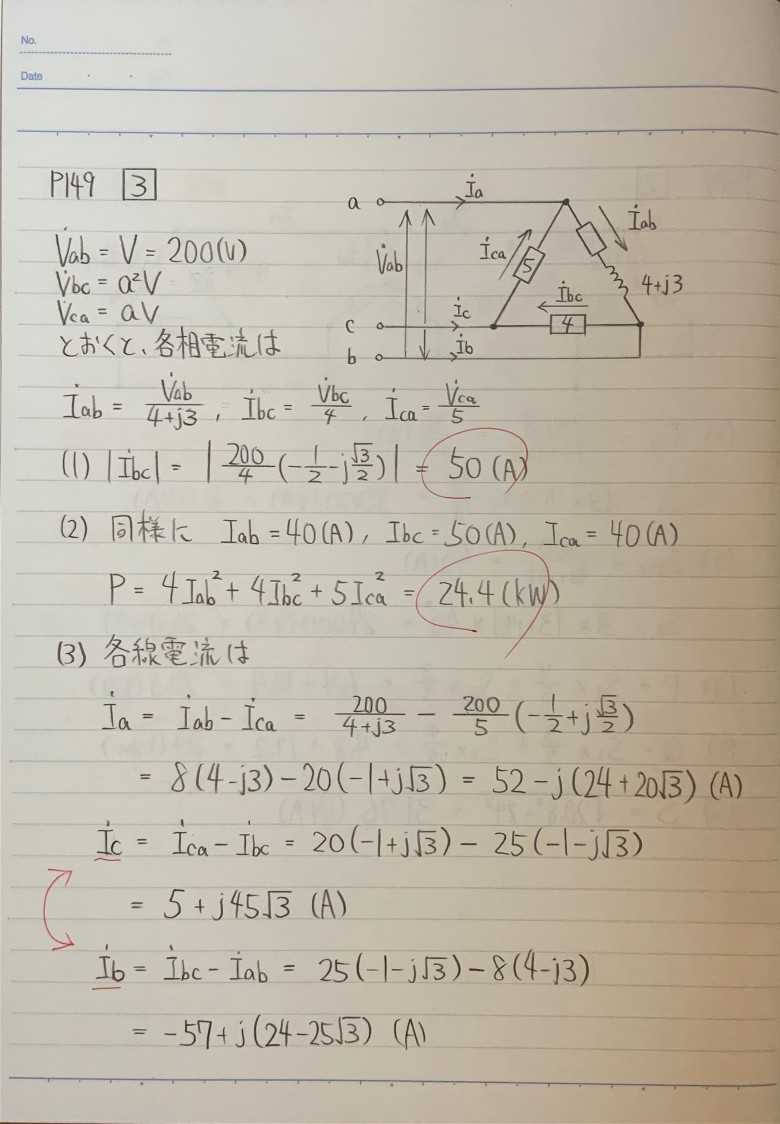 No.
Date
P149 3
İa
a
İab
V̇ab
İca
5
4+j3
İbc
4
c
İc
b
İb
V̇ab = V = 200(V)
V̇bc = a²V
V̇ca = aV
とおくと、各相電流は
İab = V̇ab/(4+j3), İbc = V̇bc/4, İca = V̇ca/5
(1) |İbc| = |200/4(-1/2-j√3/2)| = 50(A)
(2) 同様に Iab=40(A), Ibc=50(A), Ica=40(A)
P = 4Iab² + 4Ibc² + 5Ica² = 24.4(kW)
(3) 各線電流は
İa = İab - İca = 200/(4+j3) - 200/5(-1/2+j√3/2)
= 8(4-j3)-20(-1+j√3) = 52-j(24+20√3) (A)
İc = İca-İbc = 20(-1+j√3)-25(-1-j√3)
= 5+j45√3 (A)
İb = İbc-İab = 25(-1-j√3)-8(4-j3)
= -57+j(24-25√3) (A)